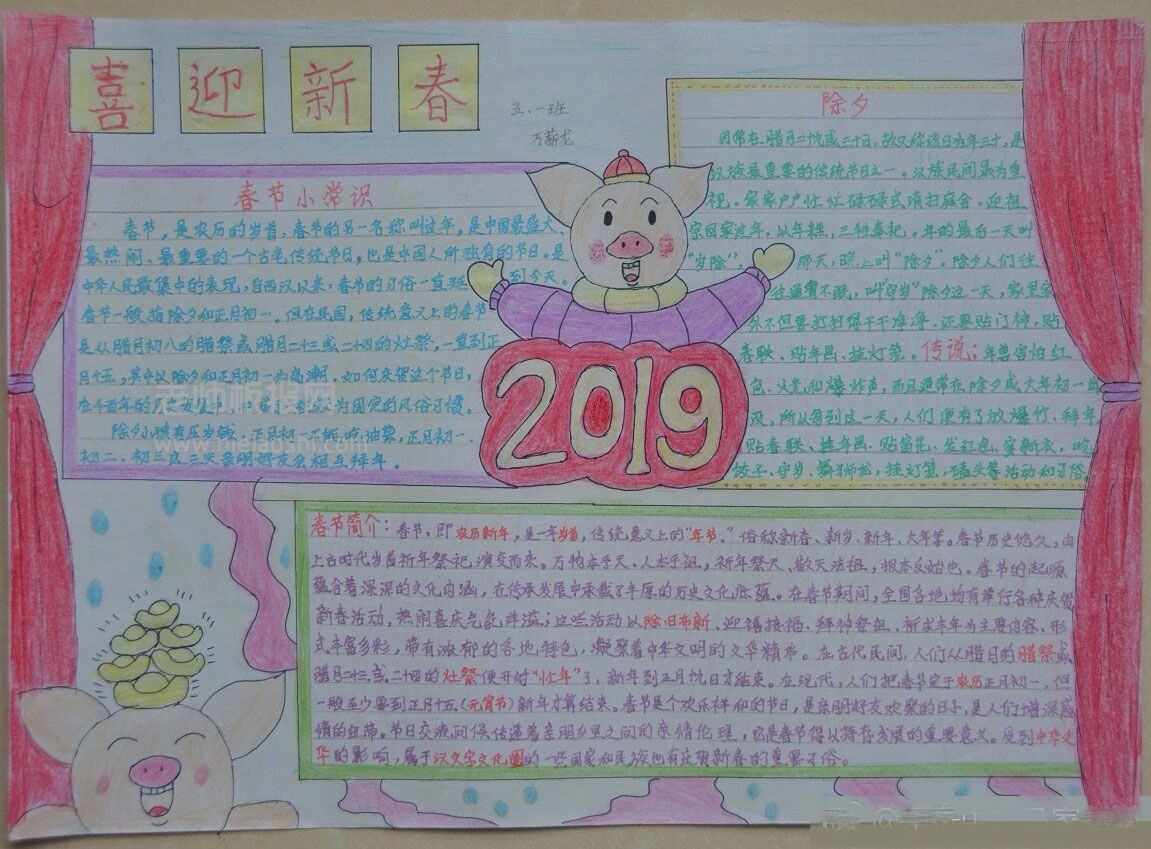 喜迎新春
五.一班
万薪龙
春节小常识
春节，是农历的岁首，春节的另一名称叫过年，是中国最盛大、
最热闹、最重要的一个古老传统节日，也是中国人所独有的节日。是
中华人民最集中的表现，自西汉以来，春节的习俗一直延 到今天。
春节一般指除夕和正月初一。但在民间，传统意义上的春节
是从腊月初八的腊祭或腊月二十三或二十四的灶祭，一直到正
月十五，其中以除夕和正月初一为高潮。如何庆贺这个节日，
在千百年的 固定的风俗习惯。
除夕小孩有压岁钱，正月初一 吃油 ，正月初一、
初二、初三这三天亲朋好友会相互拜年。
除夕
因常在腊月二十九或三十日，故又称该日为年三十，是
汉族最重要的传统节日之一。汉族民间最为重
视。家家户户忙忙碌碌或清扫庭舍，迎祖
宗回家过年，以年糕、三牲奉祀。年的最后一天叫
"岁除"， 那天，晚上叫"除夕"。除夕人们往
往通宵不眠，叫"守岁"除夕这一天，家里家
外不但要打扫得干干净净，还要贴门神，贴
春联、贴年画、挂灯笼。传说：年兽害怕红
色、火光和爆炸声，而且通常在除夕或大年初一出
没，所以每到这一天，人们便有了放爆竹、拜年、
贴春联、挂年画、贴窗花、发红包、穿新衣、吃
饺子、守岁、舞狮龙、挂灯笼、磕头等活动和习俗。
2019
春节简介：春节，即农历新年，是一年岁首，传统意义上的"年节"。俗称新春、新岁、新年、大年等。春节历史悠久，由
上古时代岁首祈年祭祀演变而来。万物本乎天、人本乎祖，祈年祭天、敬天法祖，报本反始也。春节的起源
蕴含着深深的文化内涵，在传承发展中承载了丰厚的历史文化底蕴。在春节期间，全国各地均有举行各种庆贺
新春活动，热闹喜庆气氛洋溢；这些活动以除旧布新、迎禧接福、拜神祭祖、祈求丰年为主要内容、形
式丰富多彩，带有浓郁的各地特色，凝聚着中华文明的文华精华。在古代民间，人们从腊月的腊祭或
腊月二十三或二十四的灶祭便开始"忙年"了，新年到正月十九日才结束。在现代，人们把春节定于农历正月初一，但
一般至少要到正月十五（元宵节）新年才算结束。春节是个欢乐祥和的节日，是亲朋好友欢聚的日子，是人们增深感
情的纽带。节日交流问候传递着亲朋乡里之间的亲情伦理，它是春节得以持存发展的重要意义。受到中华文
华的影响，属于汉文字文化圈的一些国家和民族也有庆贺新春的重要习俗。